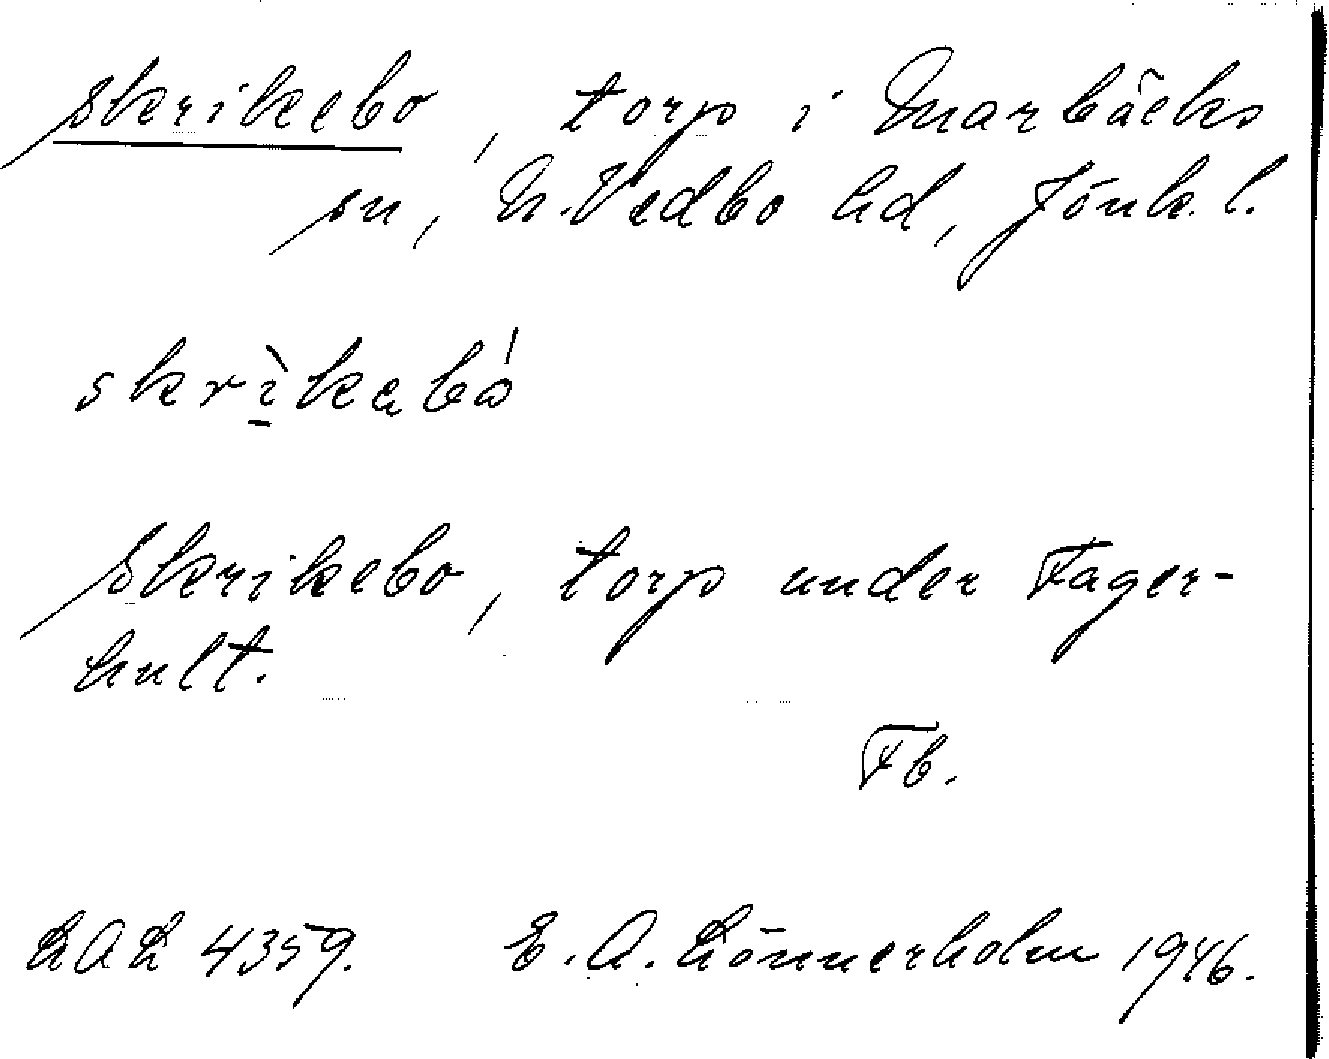 Skrikebo, torp i Marbäcks
sn, N. Vedbo hd, Jönk. l.
skrìkabó
Skrikebo, torp under Fager-
hult.
Fb.
LAL 4359. E. A. Lönnerholm 1946.